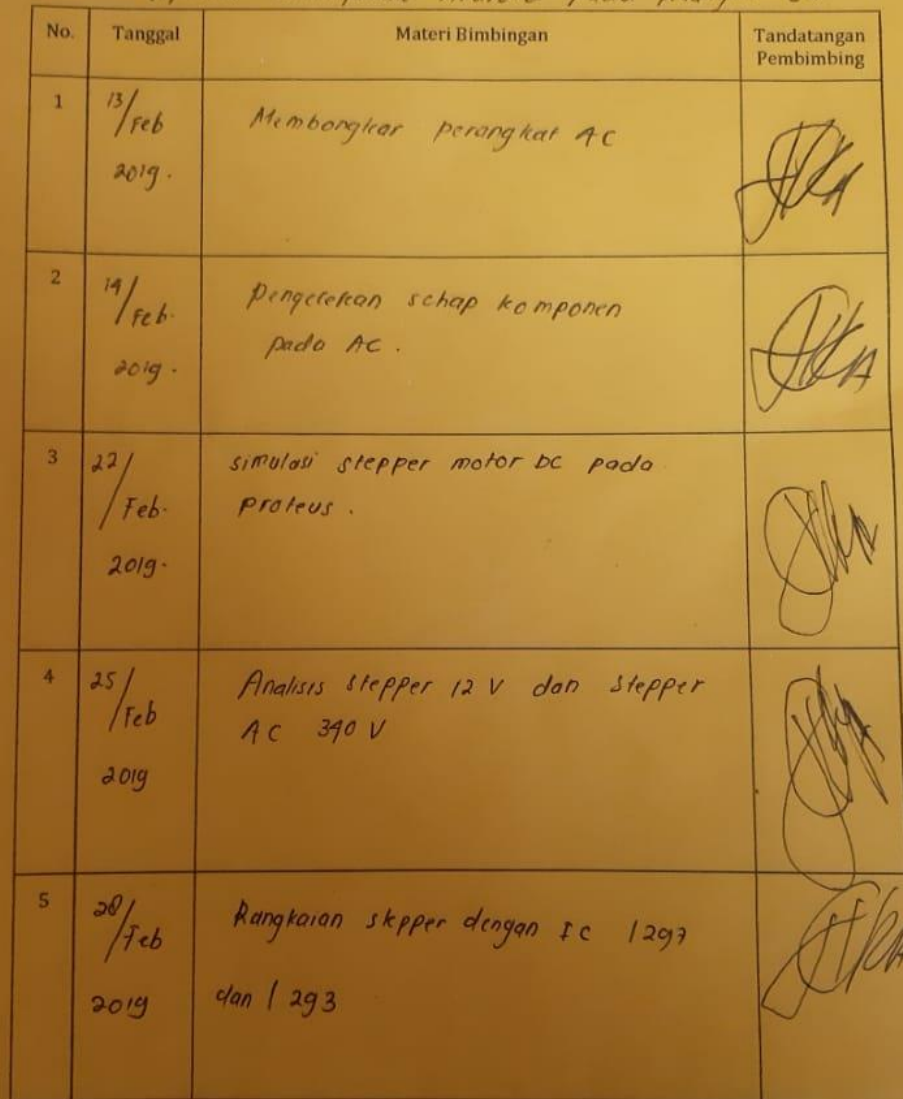 No. Tanggal Materi Bimbingan Tandatangan Pembimbing
1 13/Feb 2019. Membongkar perangkat AC
2 14/Feb. 2019. Pengecekan setiap komponen
pada AC.
3 22/Feb. 2019. simulasi stepper motor DC pada
proteus.
4 25/Feb 2019 Analisis stepper 12 V dan stepper
AC 340 V
5 28/Feb 2019 Rangkaian stepper dengan IC l297
dan l293